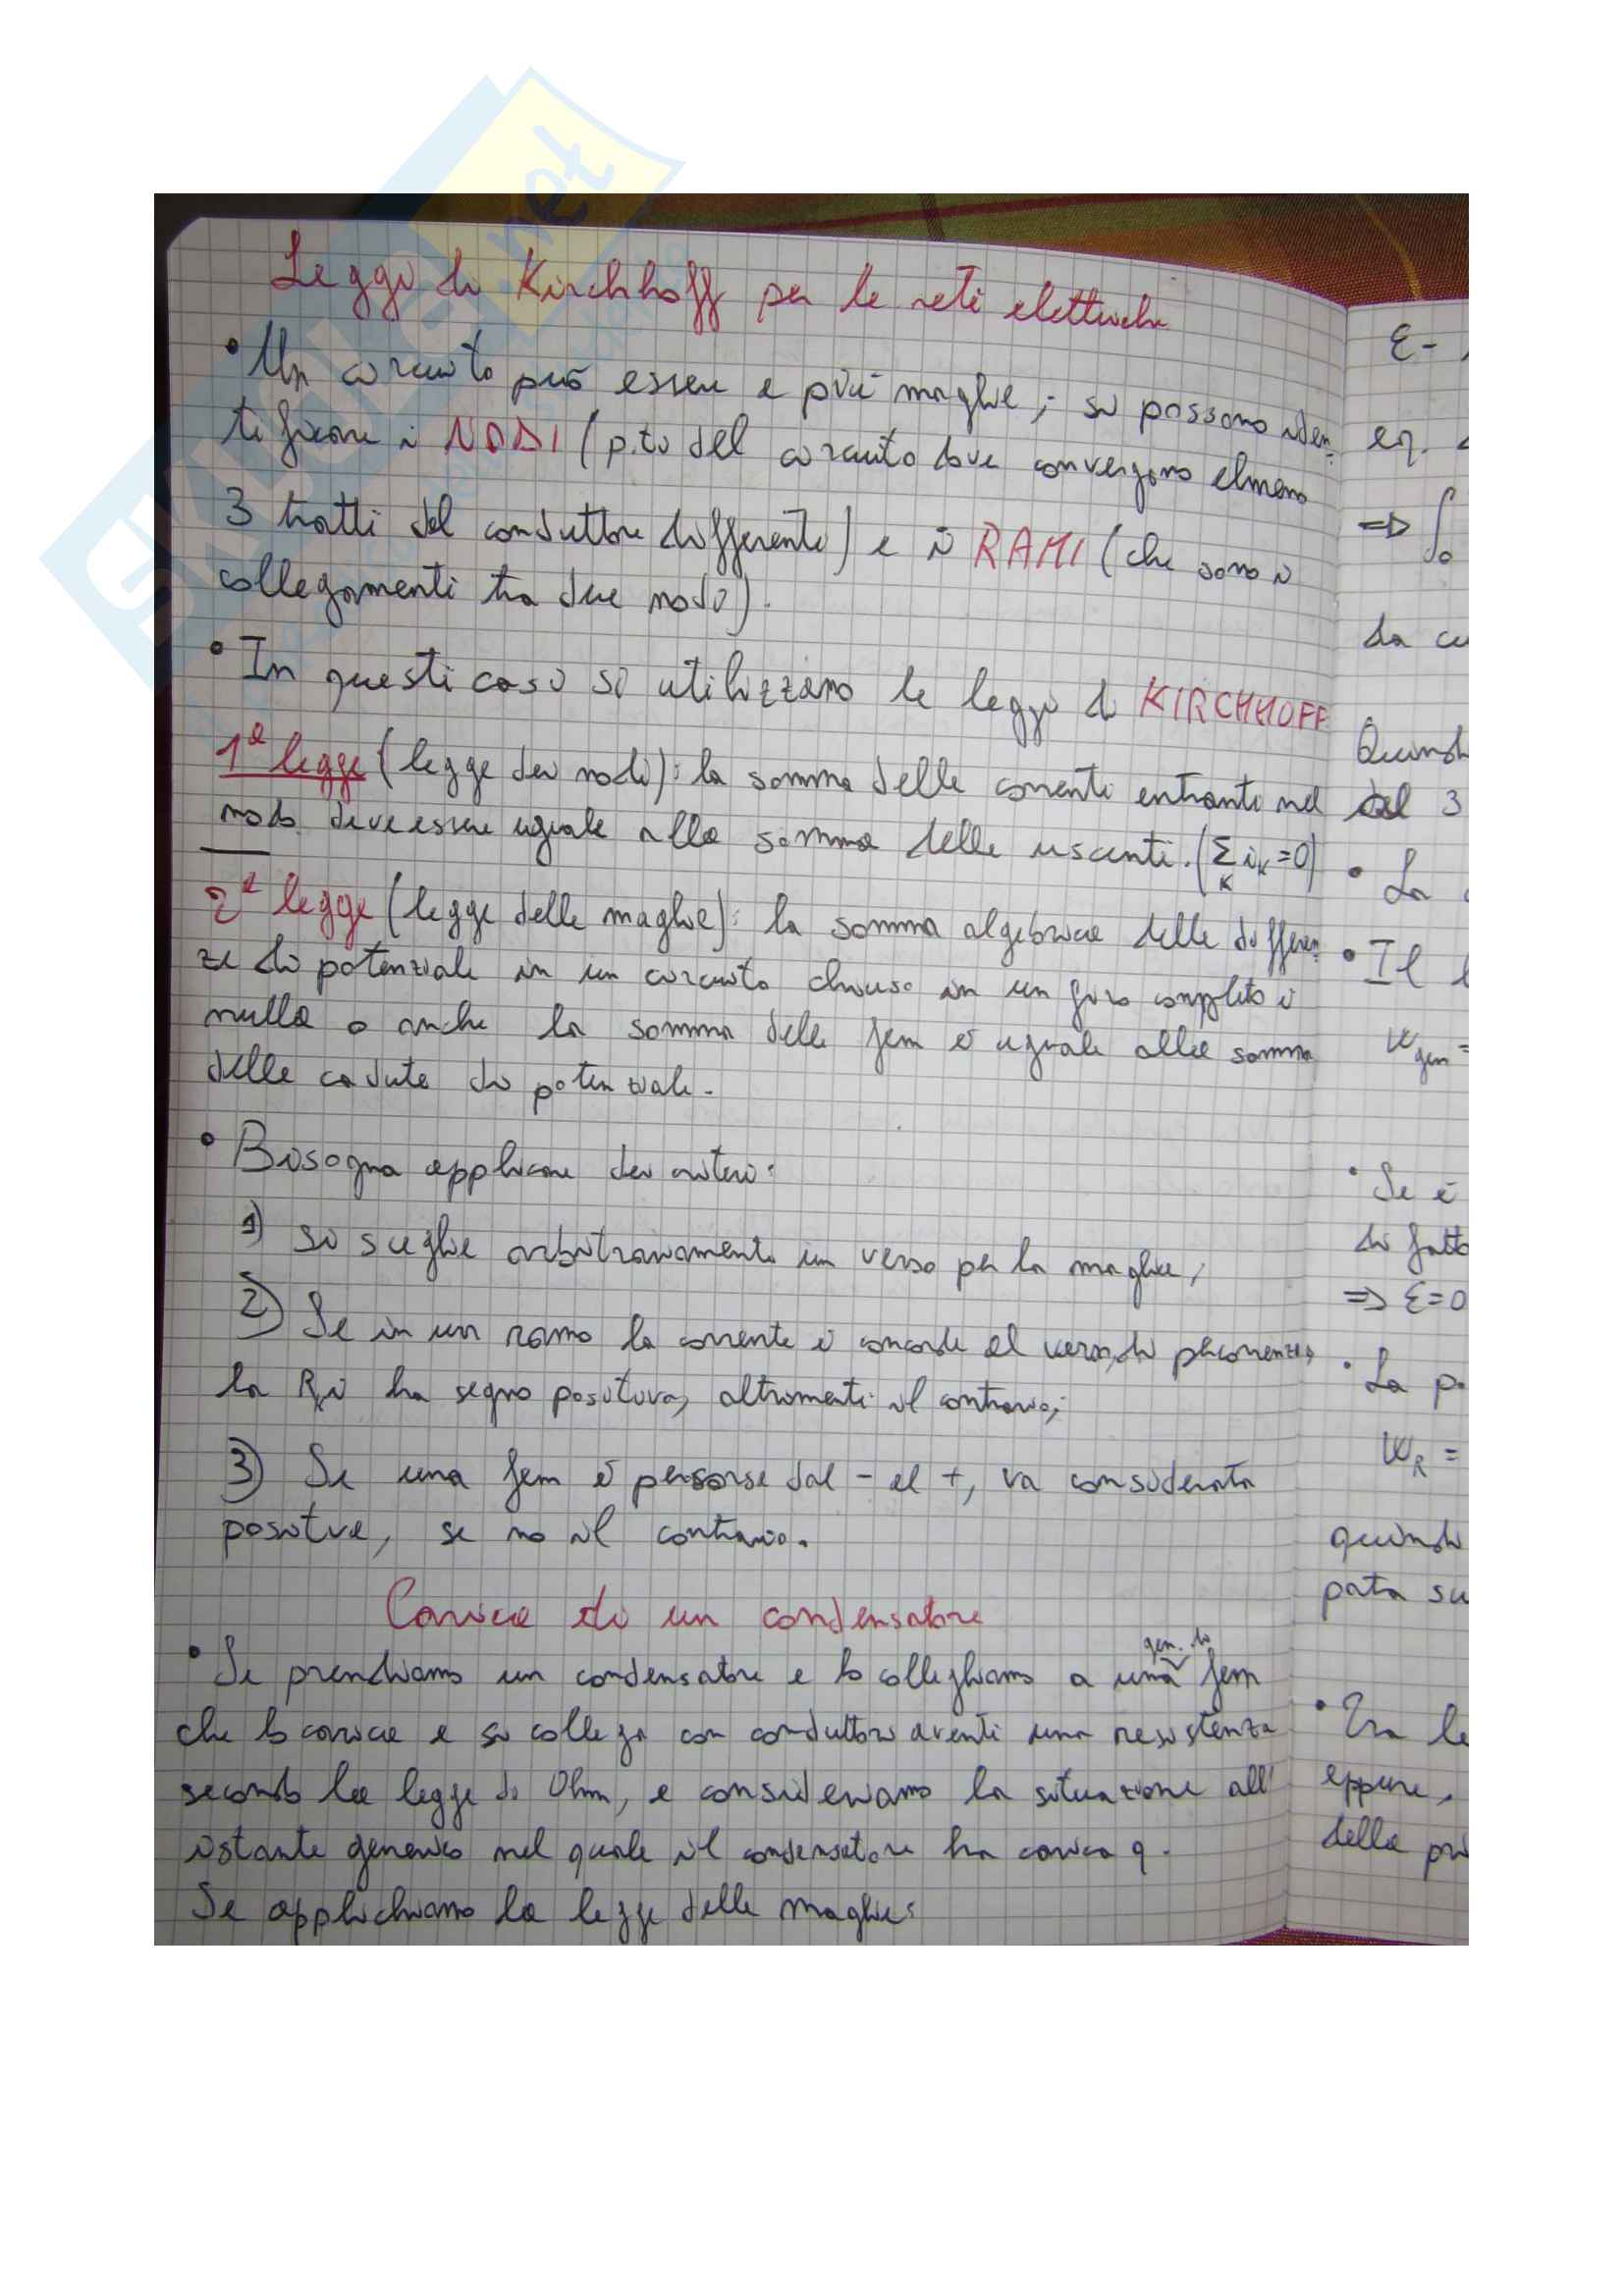 Leggi di Kirchhoff per le reti elettriche
• Un circuito può essere a più maglie; si possono iden-
tificare i NODI (p.to del circuito dove convergono almeno
3 tratti del conduttore differenti) e i RAMI (che sono i
collegamenti tra due nodi).
• In questi casi si utilizzano le leggi di KIRCHHOFF
1ª legge (legge dei nodi): la somma delle correnti entranti nel
nodo deve essere uguale alla somma delle uscenti. (Σ_K i_K=0)
2ª legge (legge delle maglie): la somma algebrica delle differen-
ze di potenziale in un circuito chiuso in un giro completo è
nulla o anche la somma delle fem è uguale alla somma
delle cadute di potenziale.
• Bisogna applicare dei criteri:
1) si sceglie arbitrariamente un verso per la maglia;
2) Se in un ramo la corrente è concorde al verso di percorrenza,
la R_i i ha segno positivo, altrimenti il contrario;
3) Se una fem è percorsa dal - al +, va considerata
positiva, se no il contrario.
Carica di un condensatore
• Se prendiamo un condensatore e lo colleghiamo a una gen. di fem
che lo carica e si collega con conduttori aventi una resistenza
secondo la legge di Ohm, e consideriamo la situazione all'
istante generico nel quale il condensatore ha carica q.
Se applichiamo la legge delle maglie:
ε-
eq.
=> ∫₀
da cu
Quindi
del 3
• La
• Il
W_gen =
• Se è
di fatto
=> ε=0
• La p
W_R =
quindi
pata su
• Tra le
eppure,
della pri
net